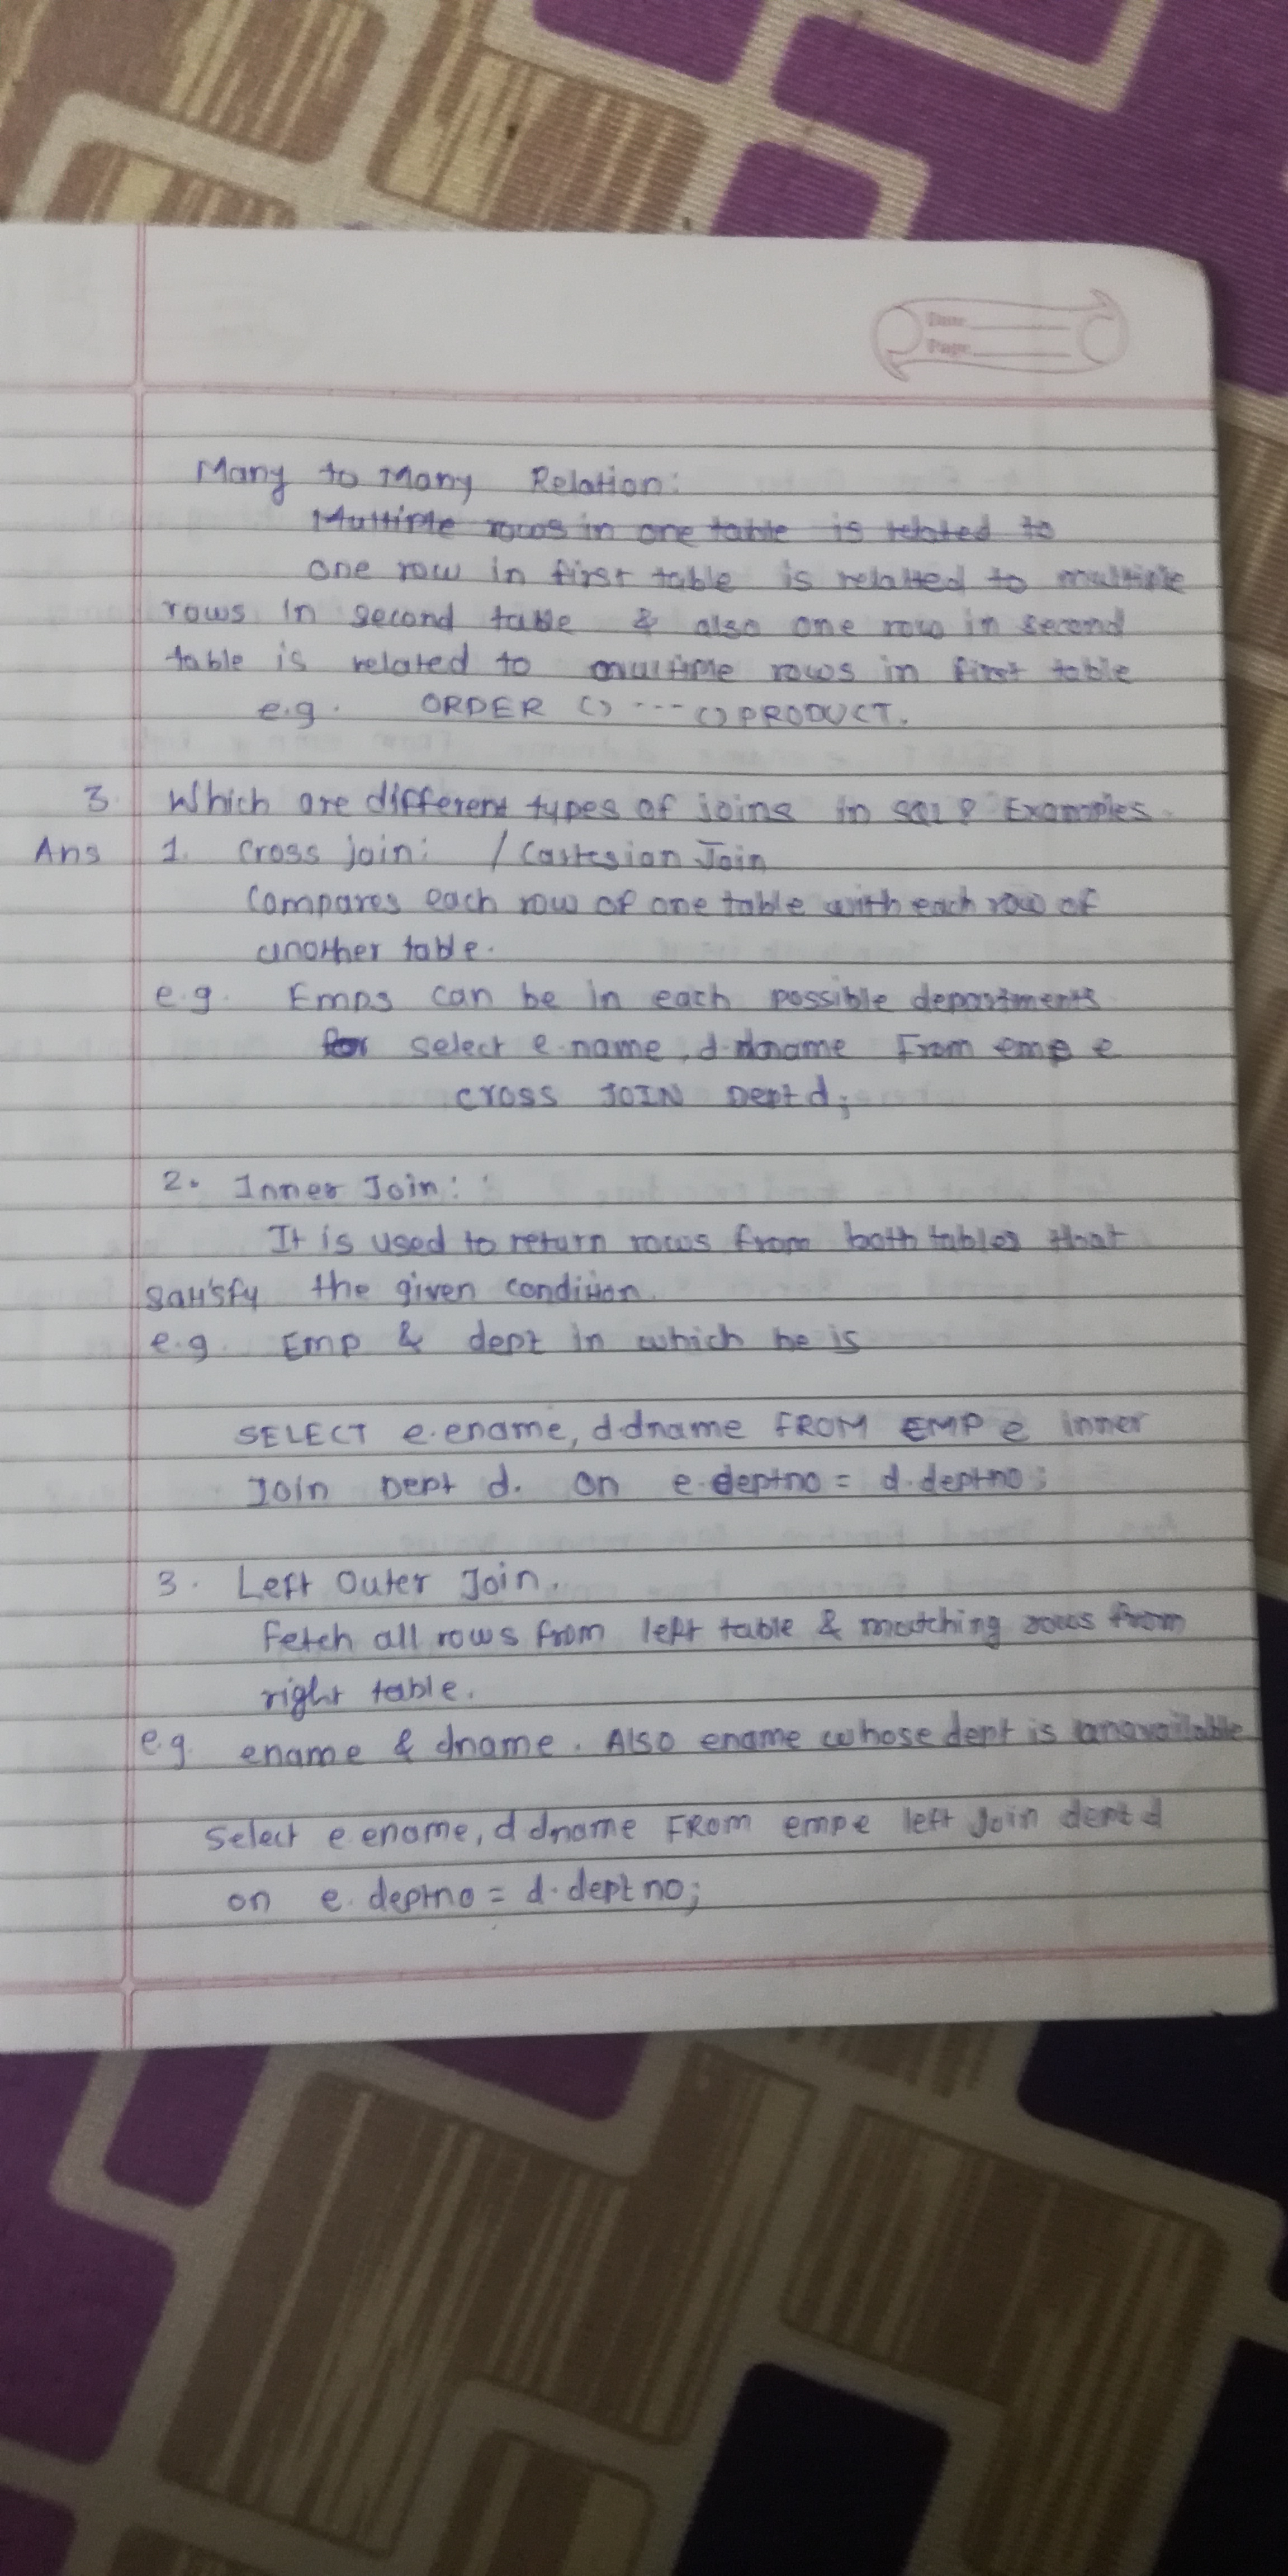 Date
Page
Many to Many Relation:
Multiple rows in one table is related to
one row in first table is relatted to multiple
rows in second table & also one row in second
table is related to multiple rows in first table
e.g. ORDER () --- () PRODUCT.
3. Which are different types of joins in SQL? Examples.
Ans 1. Cross join: / Cartesian Join
Compares each row of one table with each row of
another table.
e.g. Emps can be in each possible departments
for select e.name, d.dname From emp e
cross JOIN Dept d;
2. Inner Join:
It is used to return rows from both tables that
satisfy the given condition.
e.g. Emp & dept in which he is
SELECT e.ename, d.dname FROM EMP e inner
Join Dept d. on e.deptno = d.deptno;
3. Left Outer Join.
Fetch all rows from left table & matching rows from
right table.
e.g. ename & dname. Also ename whose dept is unavailable
Select e.ename, d.dname FROM emp e left join dept d
on e.deptno = d.deptno;